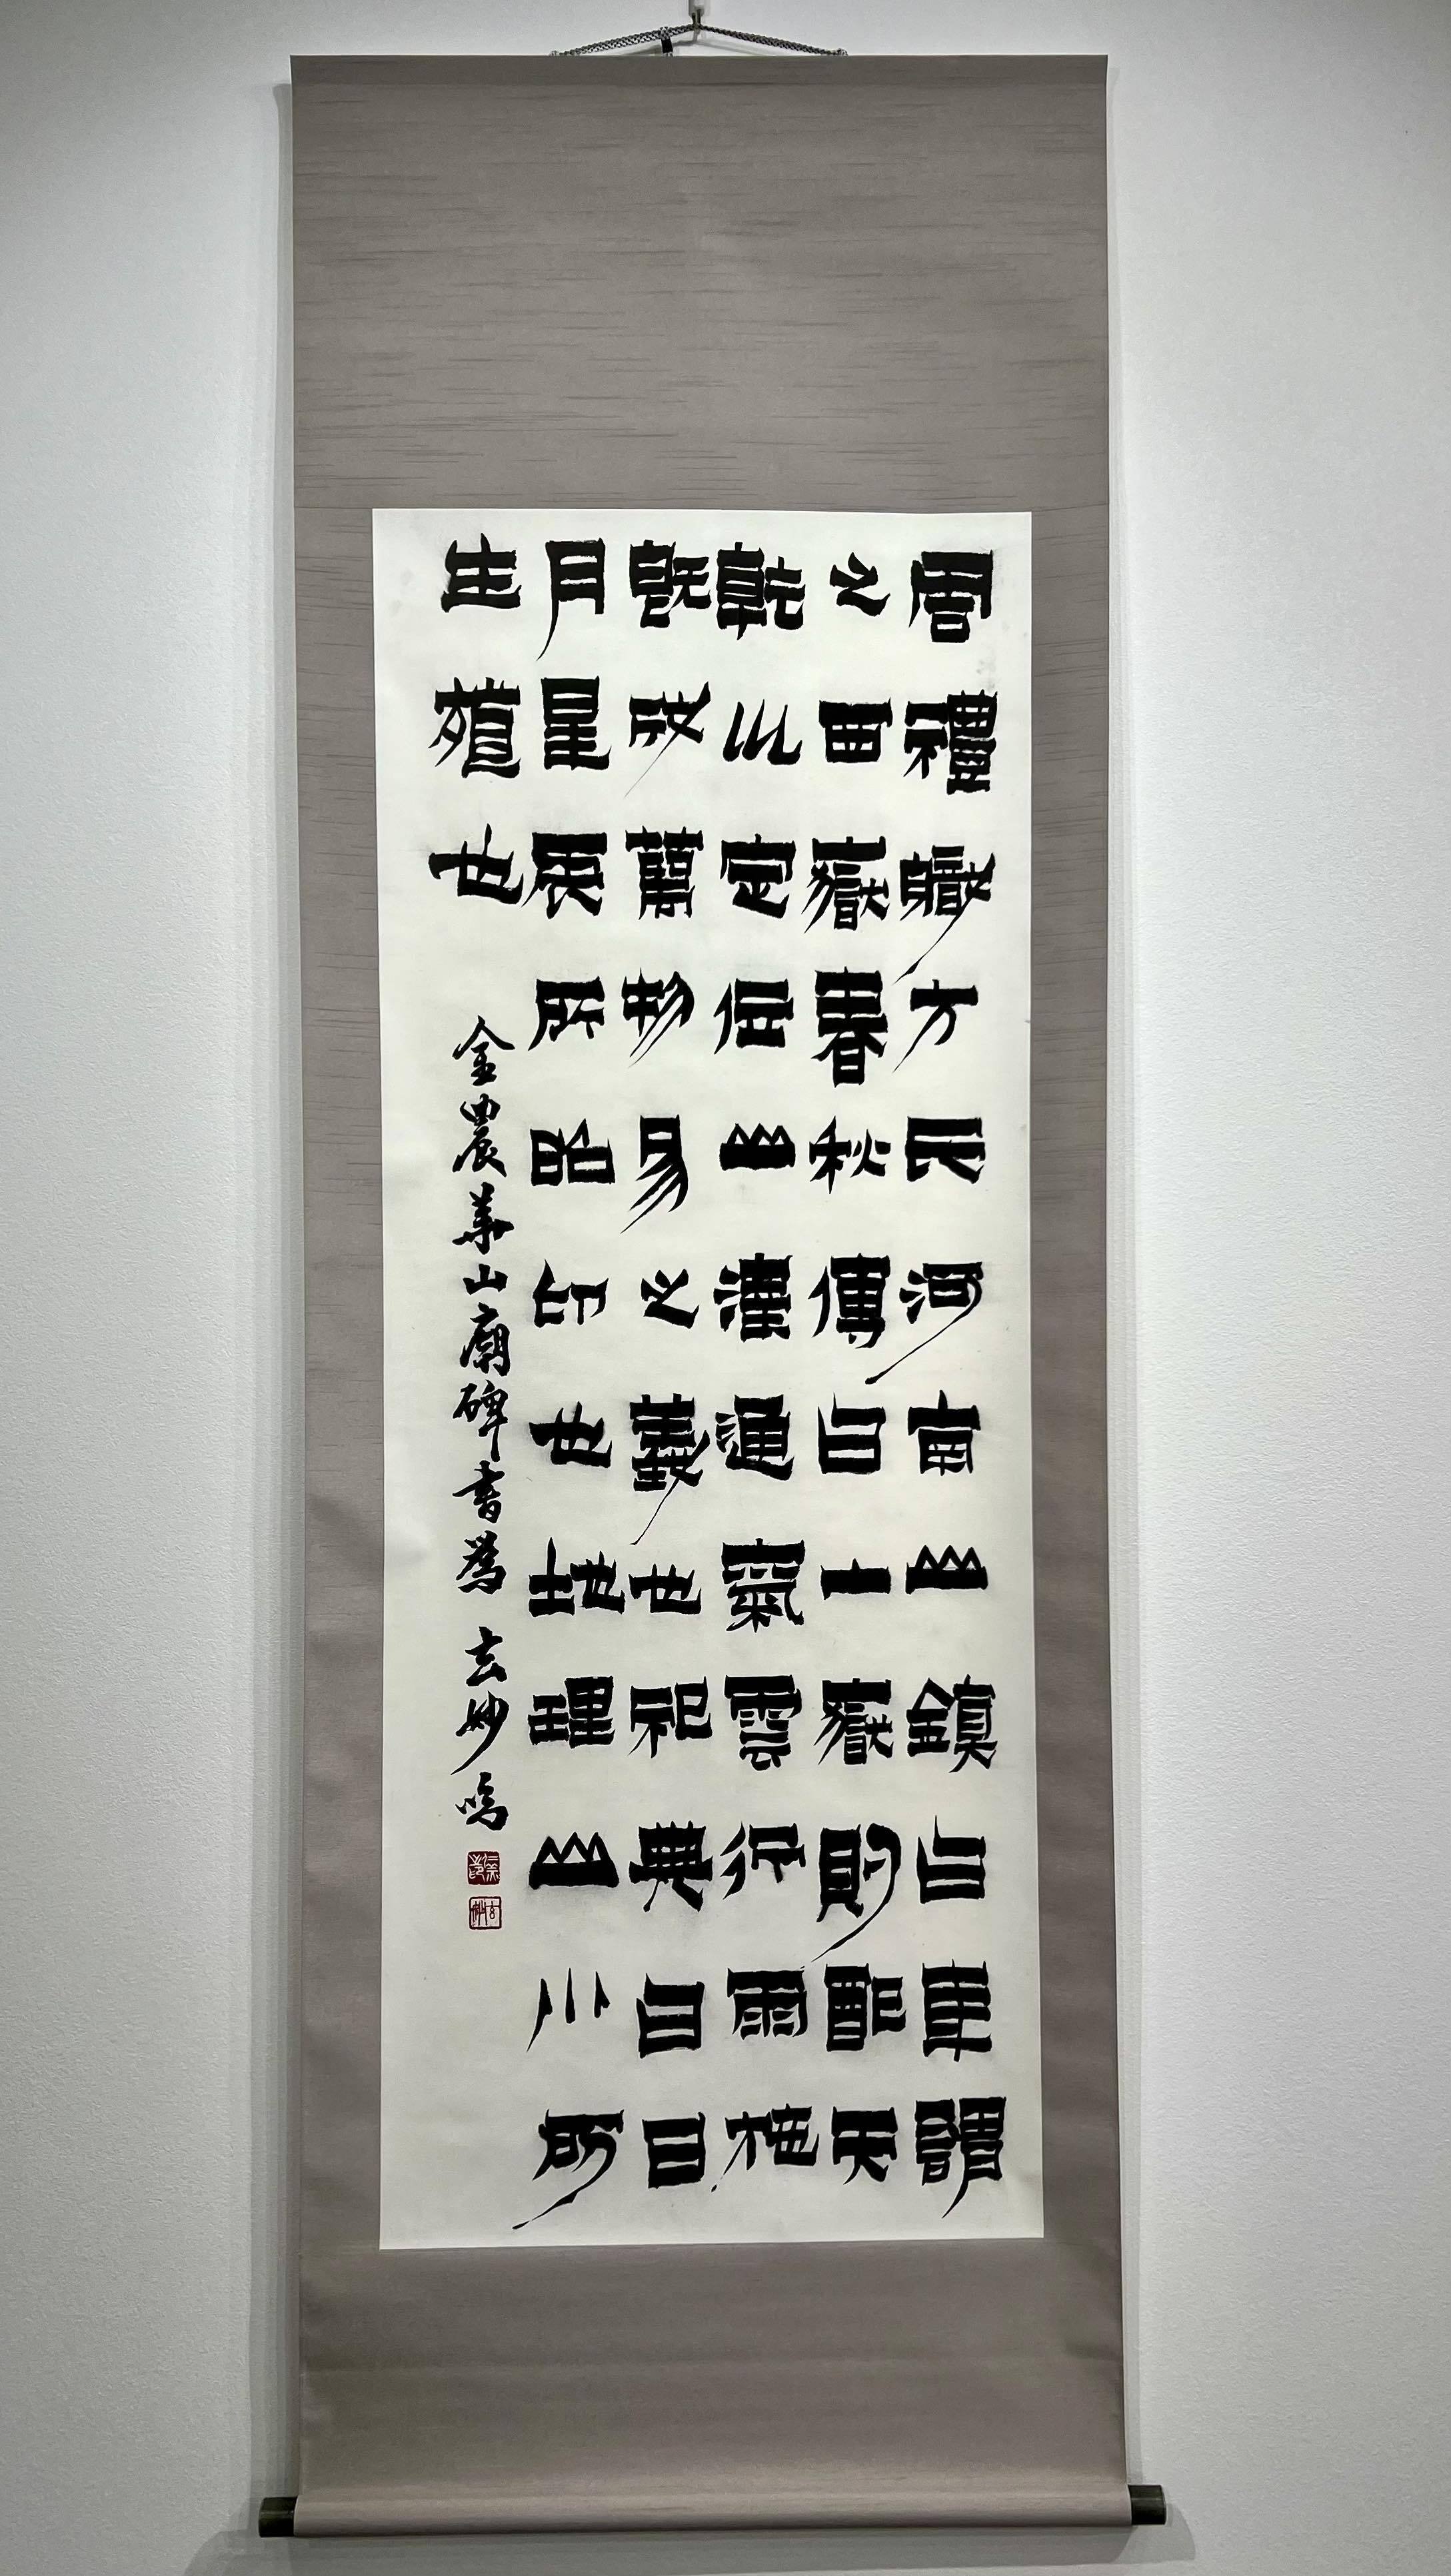 周禮職方氏河南山鎮曰華謂
之西嶽春秋傳曰山嶽則配天
乾以定位山澤通氣雲行雨施
既成萬物易之義也祀典曰日
月星辰所昭卬也地理山川所
生殖也
金農華山廟碑書 玄妙鳴
玄妙